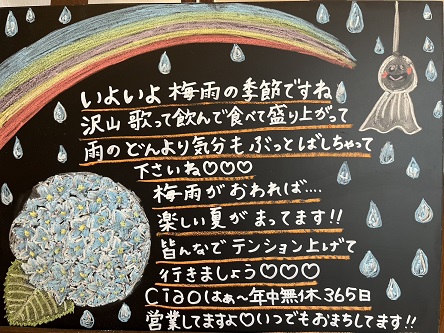 いよいよ 梅雨の季節ですね
沢山 歌って飲んで食べて盛り上がって
雨のどんより気分も ぶっとばしちゃって
下さいね♡♡♡
梅雨がおわれば‥‥
楽しい夏が まってます!!
皆んなで テンション上げて
行きましょう♡♡♡
Ciaoはぁ〜年中無休365日
営業してますよ♡いつでもおまちしてます!!